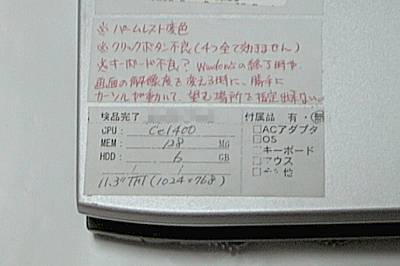 ※ パームレスト変色
※ クリックボタン不良(4つ全て効きません)
※ キーボード不良? Windowsの終了時や
画面の解像度を変える時に、勝手に
カーソルが動いて、望む場所を指定出来ない
検品完了
付属品 有・無
CPU: Cel400
MEM: 128 MB
HDD: 6 GB
11.3"TFT(1024×768)
□ACアダプタ
□OS
□キーボード
□マウス
□その他